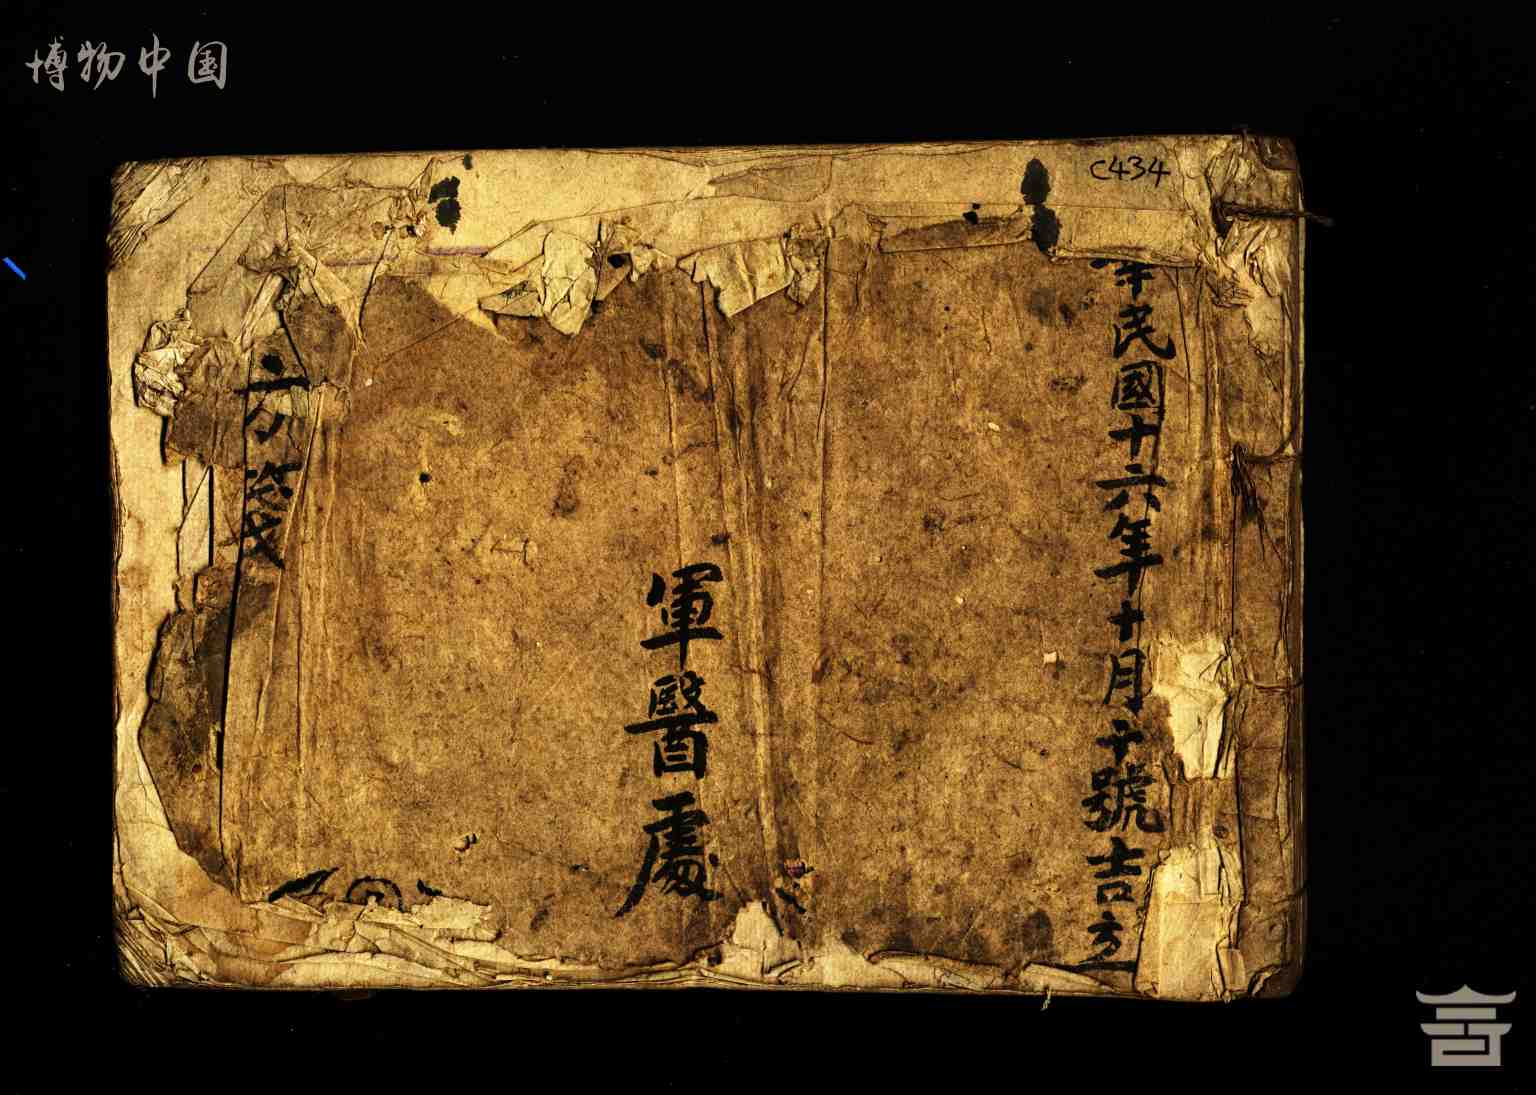 博物中国
C434
華民國十六年十月千號吉立
軍醫處
方箋